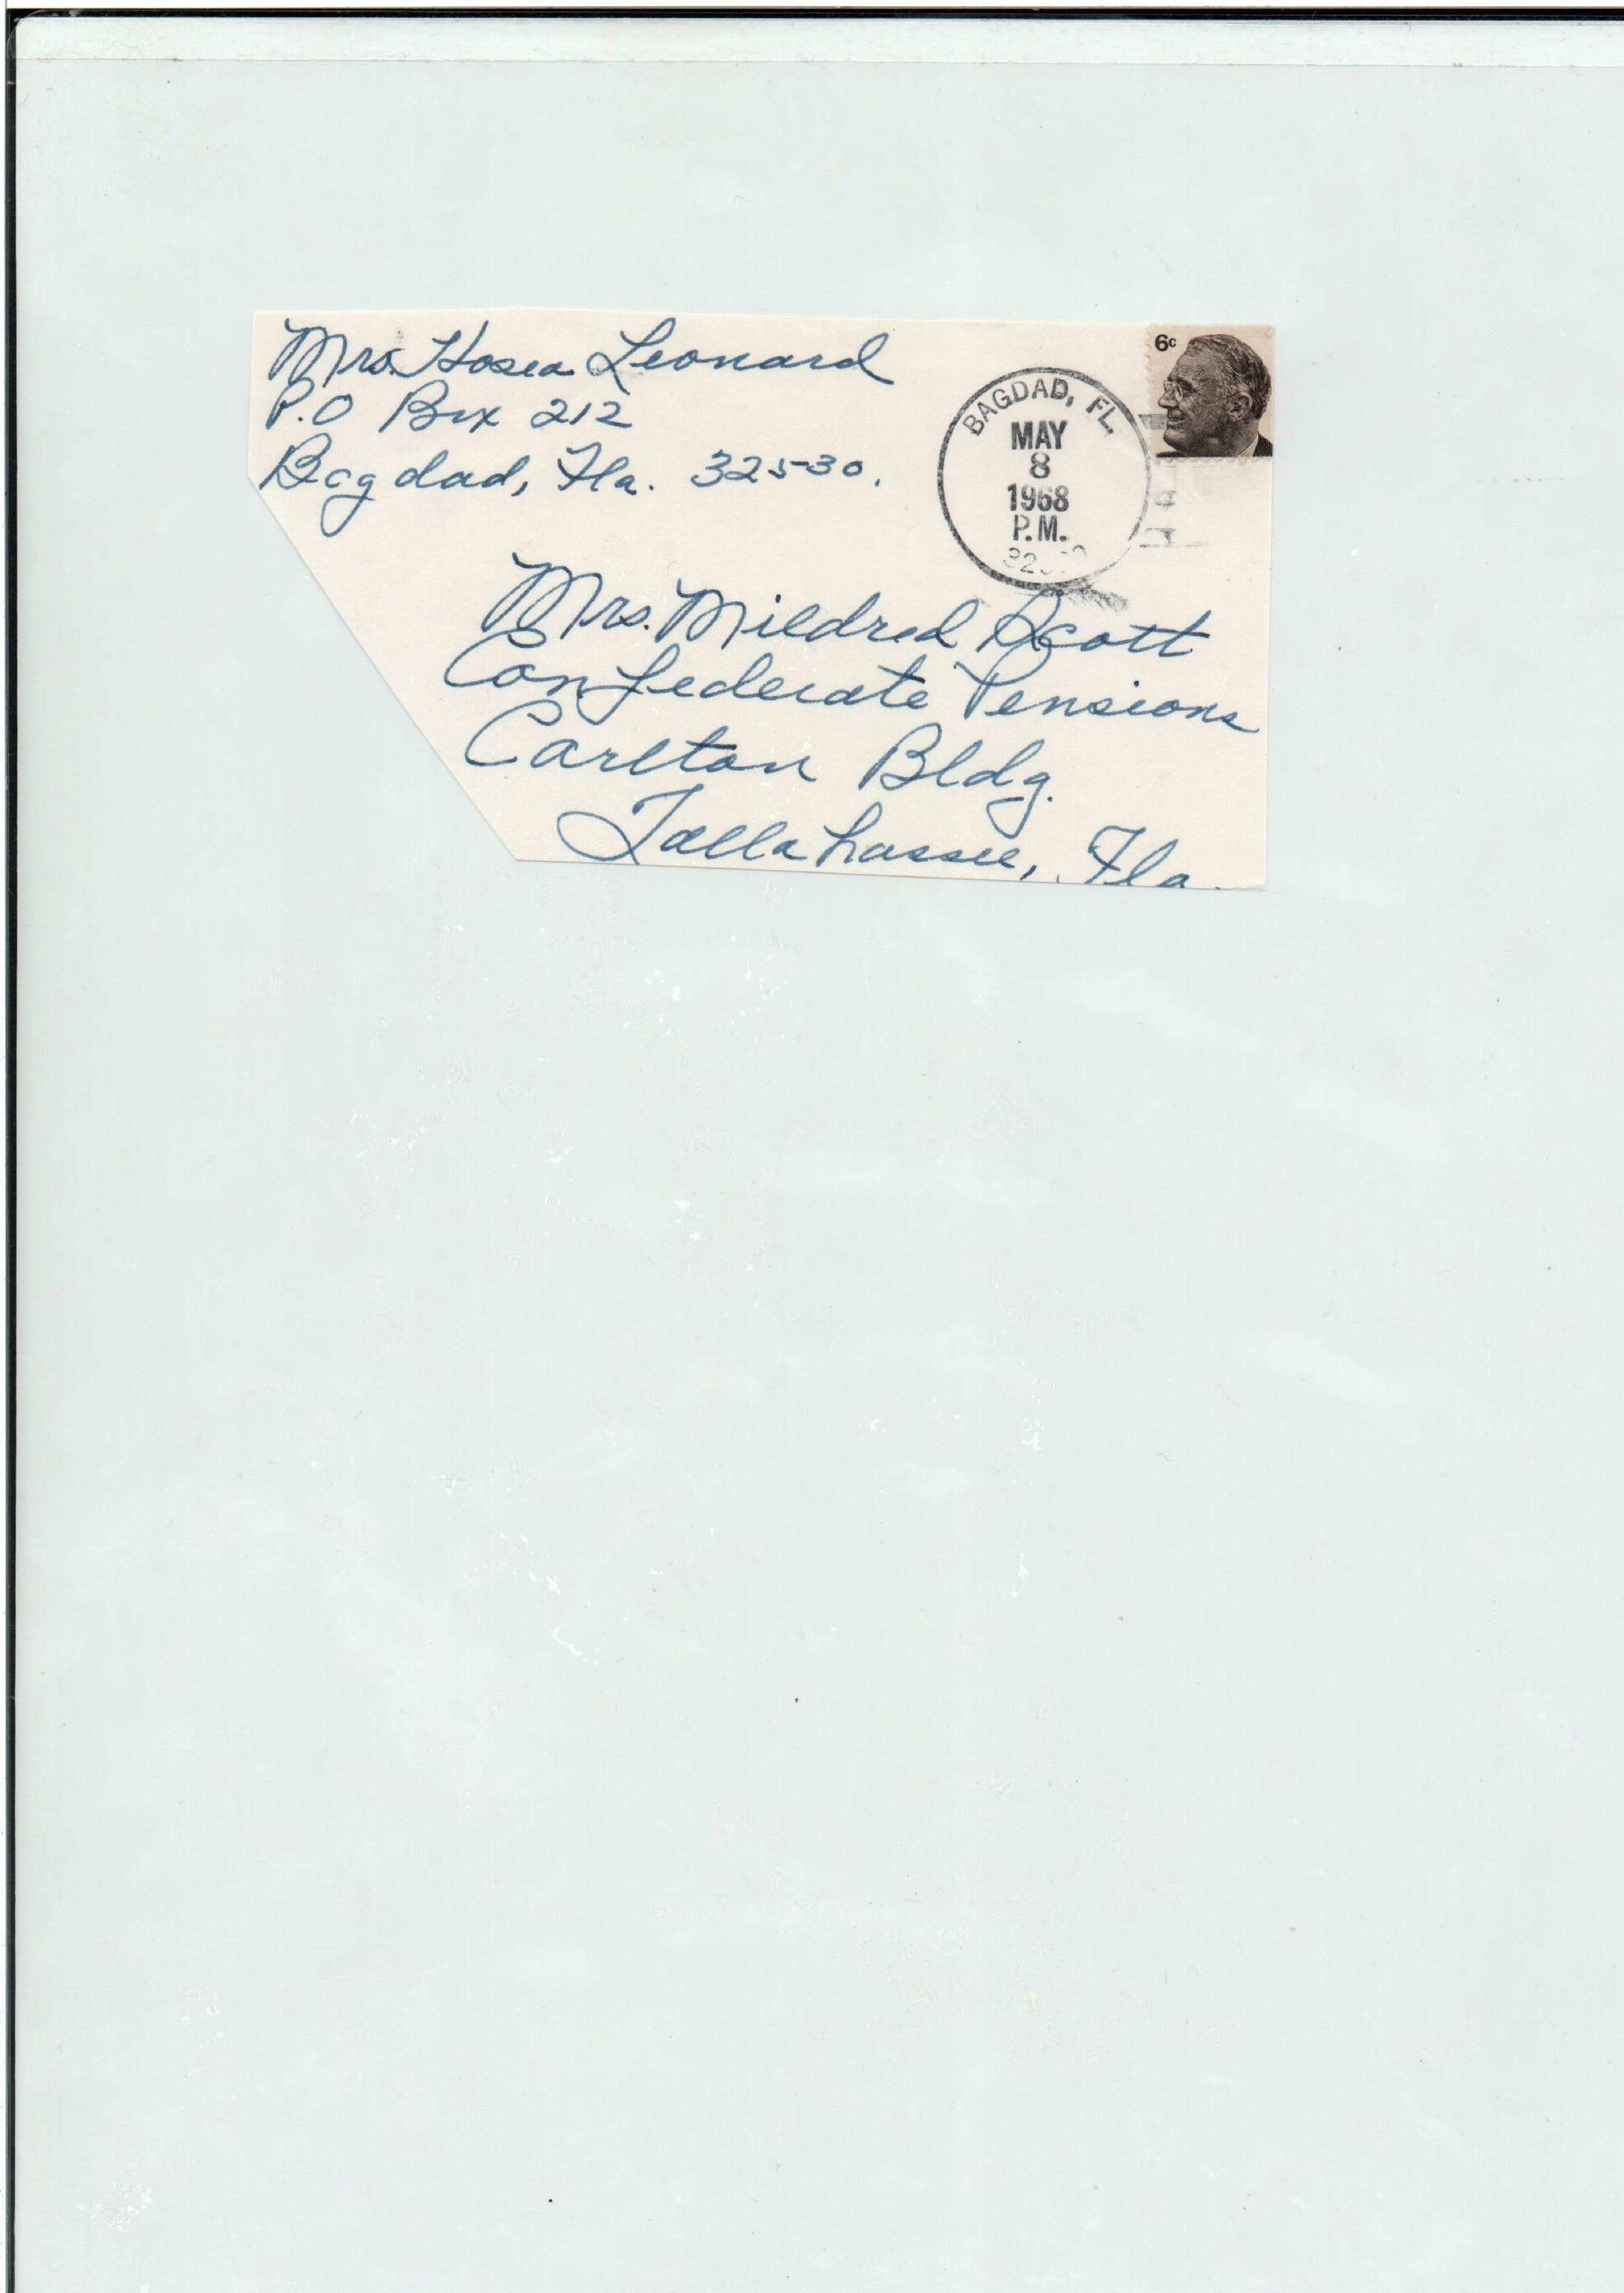 Mrs. Hosea Leonard
P.O Box 212
Bagdad, Fla. 32530.
6c
BAGDAD, FL.
MAY
8
1968
P.M.
Mrs. Mildred Scott
Confederate Pensions
Carlton Bldg.
Tallahassee, Fla.